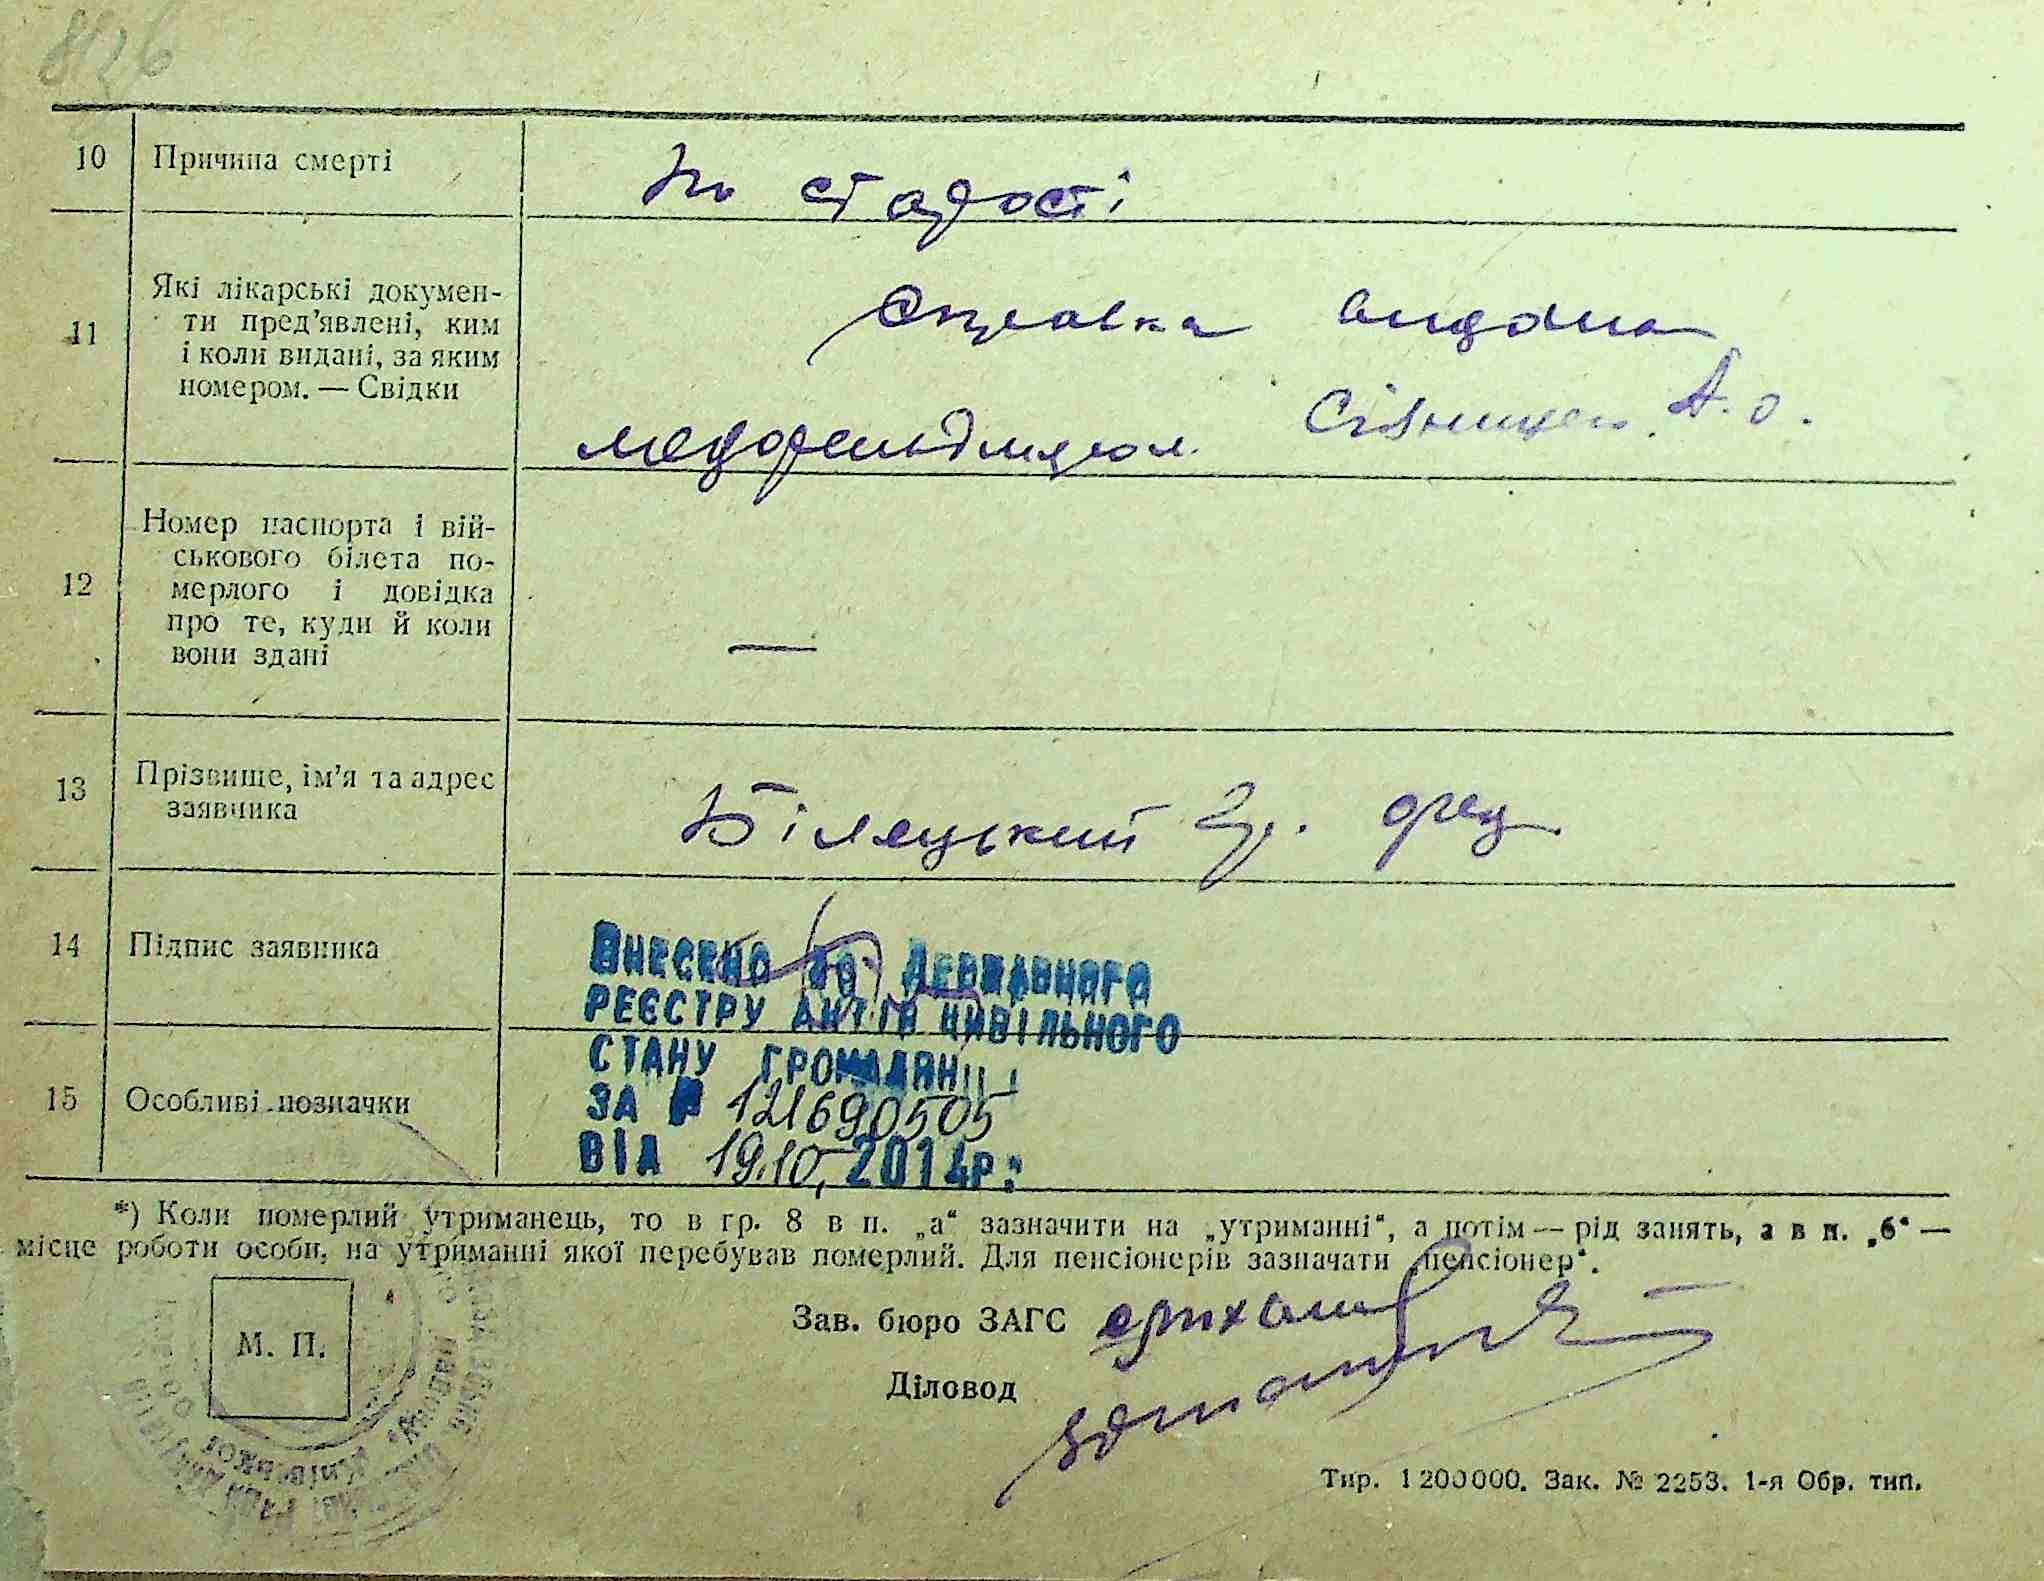 8126
10 Причина смерті По старості
11 Які лікарські докумен-
ти пред'явлені, ким
і коли видані, за яким
номером. — Свідки
Справка видана
А. О.
12 Номер паспорта і вій-
ськового білета по-
мерлого і довідка
про те, куди й коли
вони здані
—
13 Прізвище, ім'я та адрес
заявника
Біляцький Гр.
14 Підпис заявника
ВНЕСЕНО ДО ДЕРЖАВНОГО
РЕЄСТРУ АКТІВ ЦИВІЛЬНОГО
СТАНУ ГРОМАДЯН
15 Особливі позначки
ЗА № 121690505
ВІД 19.10. 2014р.
*) Коли померлий утриманець, то в гр. 8 в п. „а“ зазначити на „утриманні“, а потім — рід занять, а в п. „б“ —
місце роботи особи, на утриманні якої перебував померлий. Для пенсіонерів зазначати „пенсіонер“.
Зав. бюро ЗАГС
М. П.
Діловод
Київської
Тир. 1200000. Зак. № 2253. 1-я Обр. тип.